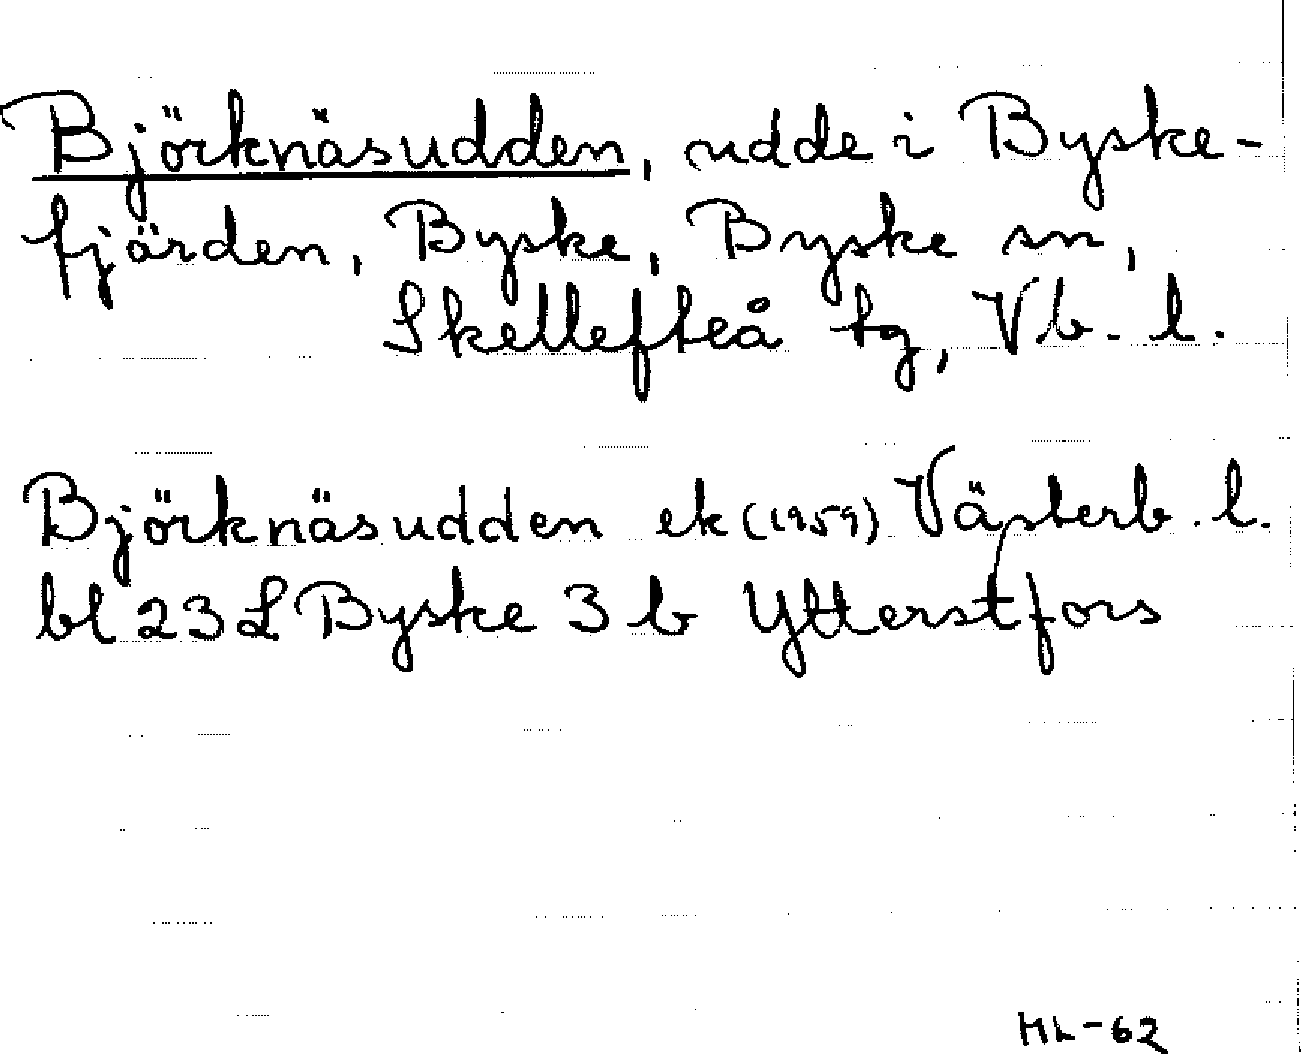 Björknäsudden, udde i Byske-
fjärden, Byske, Byske sn,
Skellefteå tg, Vb. l.
Björknäsudden ek (1959) Västerb. l.
bl 23 L Byske 3 b Ytterstfors
ML-62